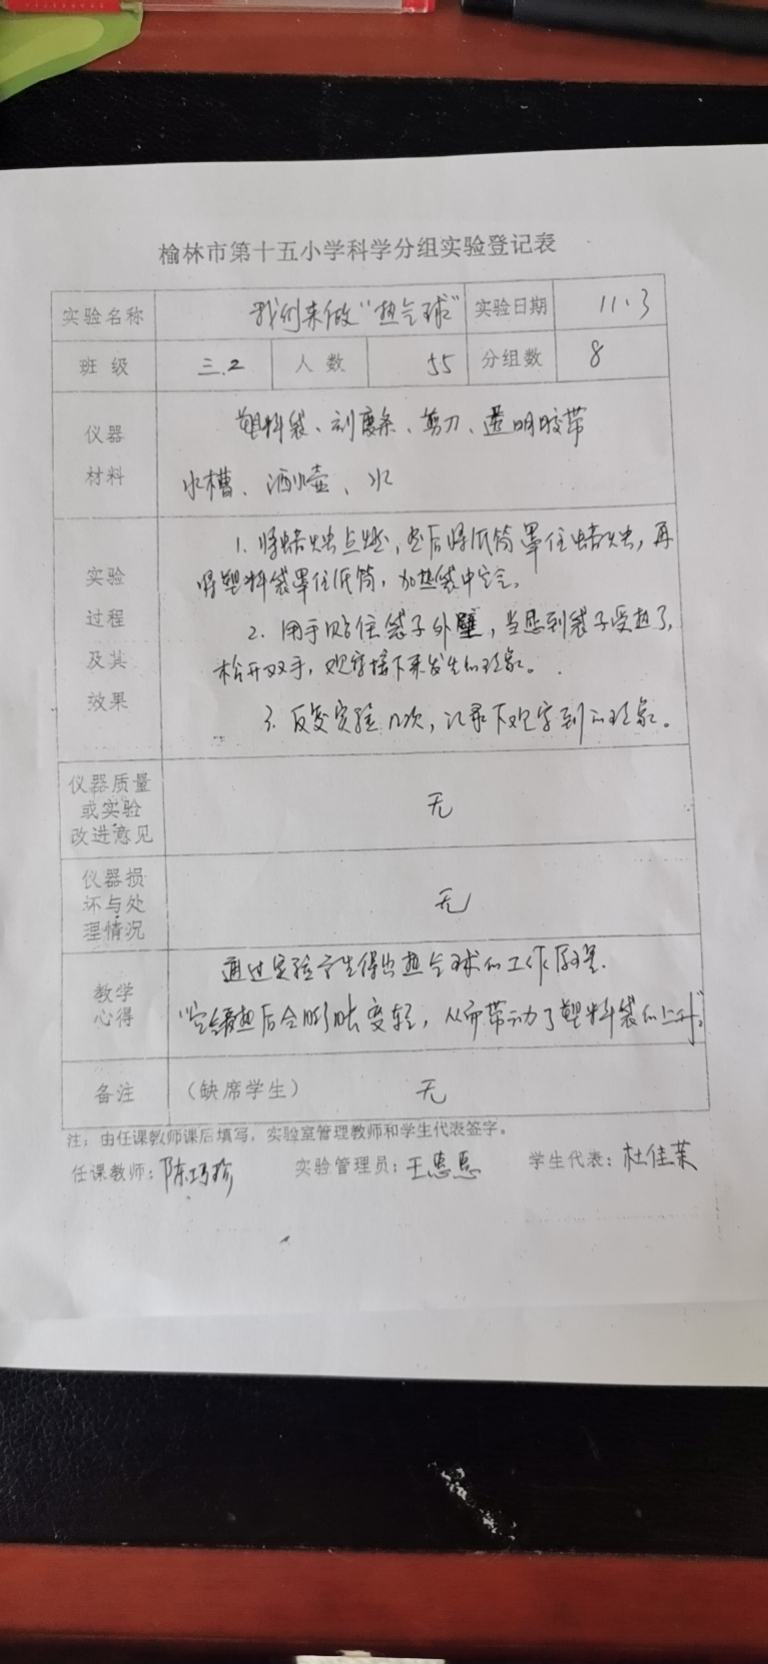 榆林市第十五小学科学分组实验登记表
实验名称 我们来做“热气球” 实验日期 11.3
班级 三.2 人数 55 分组数 8
仪器
材料
塑料袋、刻度条、剪刀、透明胶带
水槽、洒水壶、水
实验
过程
及其
效果
1. 将蜡烛点燃,然后将纸筒罩住蜡烛,再
将塑料袋罩住纸筒,加热袋中空气。
2. 用手贴住袋子外壁,当感到袋子受热了,
松开双手,观察接下来发生的现象。
3. 反复实验几次,记录下观察到的现象。
仪器质量
或实验
改进意见
无
仪器损
坏与处
理情况
无
教学
心得
通过实验学生得出热气球的工作原理.
“空气受热后会膨胀变轻,从而带动了塑料袋的上升”。
备注 (缺席学生) 无
注:由任课教师课后填写,实验室管理教师和学生代表签字。
任课教师:陈巧珍 实验管理员:王恩恩 学生代表:杜佳茉